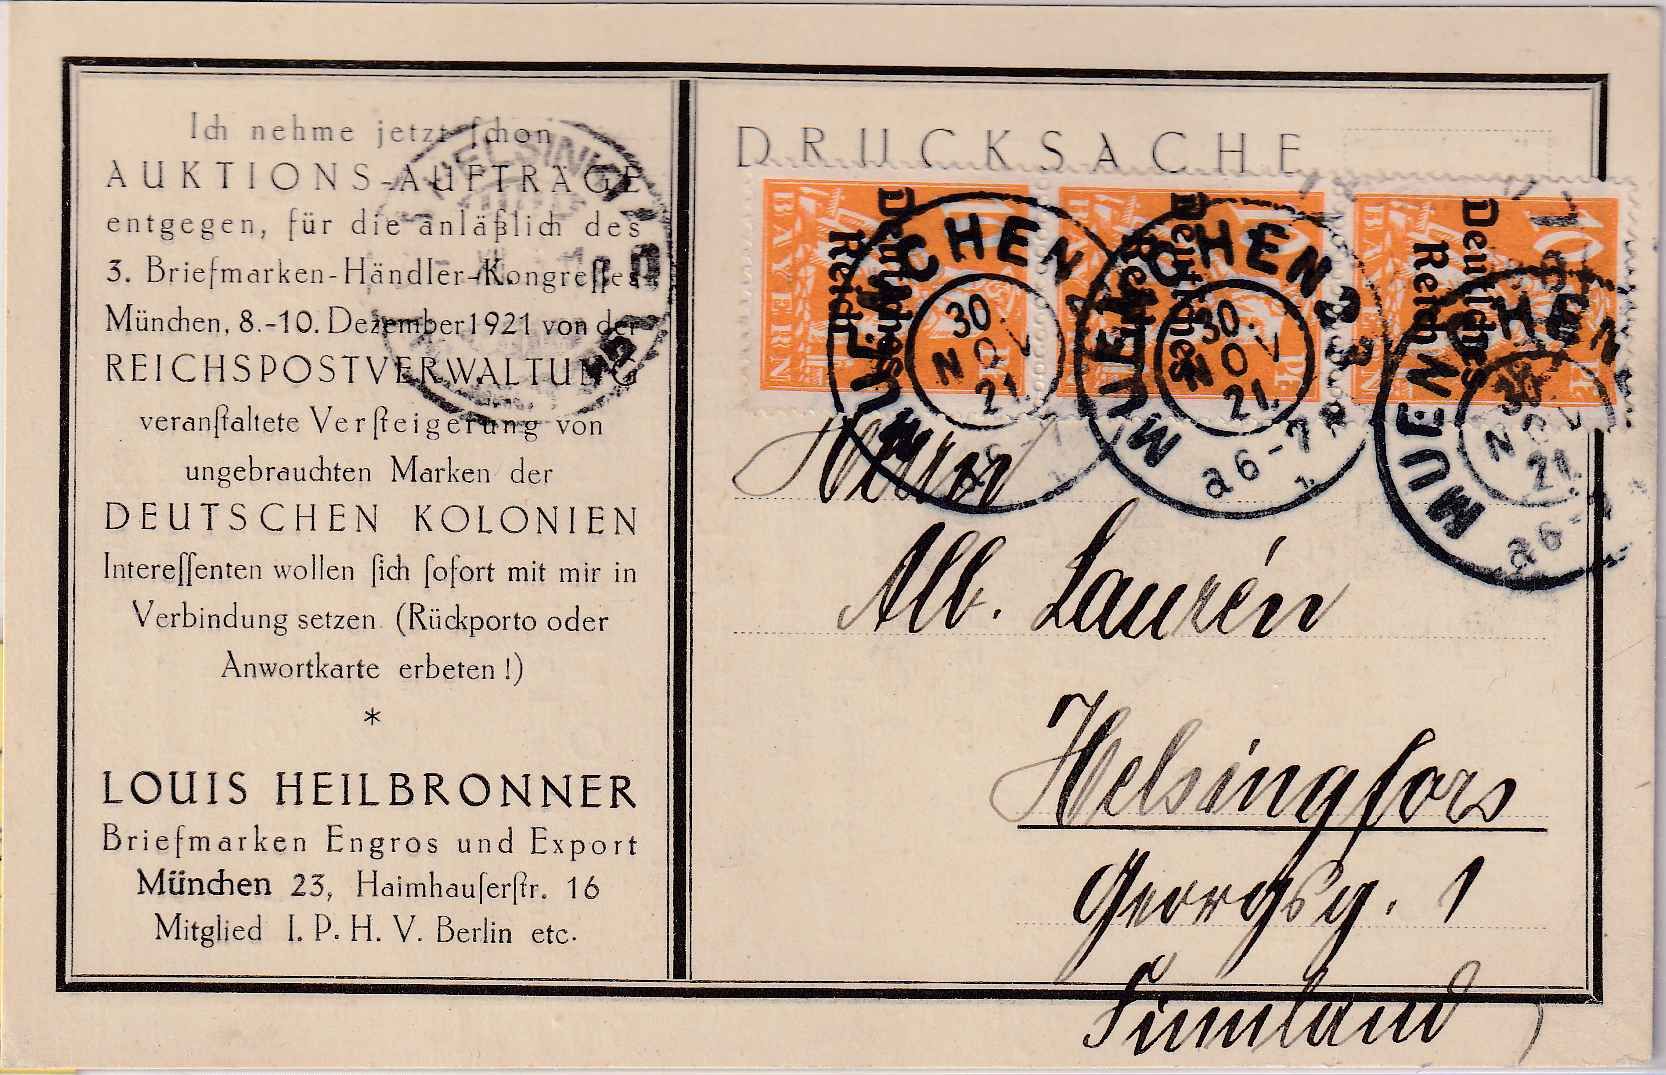 Ich nehme jetzt schon
AUKTIONS-AUFTRÄGE
entgegen, für die anläßlich des
3. Briefmarken-Händler-Kongresses
München, 8.-10. Dezember 1921 von der
REICHSPOSTVERWALTUNG
veranstaltete Versteigerung von
ungebrauchten Marken der
DEUTSCHEN KOLONIEN
Interessenten wollen sich sofort mit mir in
Verbindung setzen (Rückporto oder
Anwortkarte erbeten!)
*
LOUIS HEILBRONNER
Briefmarken Engros und Export
München 23, Haimhauserstr. 16
Mitglied I. P. H. V. Berlin etc.
HELSINKI
DRUCKSACHE
BAYERN
Deutsches
Reich
10
BAYERN
Deutsches
Reich
10
BAYERN
Deutsches
Reich
MUENCHEN
30.
NOV
21.
MUENCHEN 23
30.
NOV
21.
a6-7
MUENCHEN
30.
NOV
21.
a6-7
Herrn
Alb. Laurén
Helsingfors
Georgsg. 1
Finnland